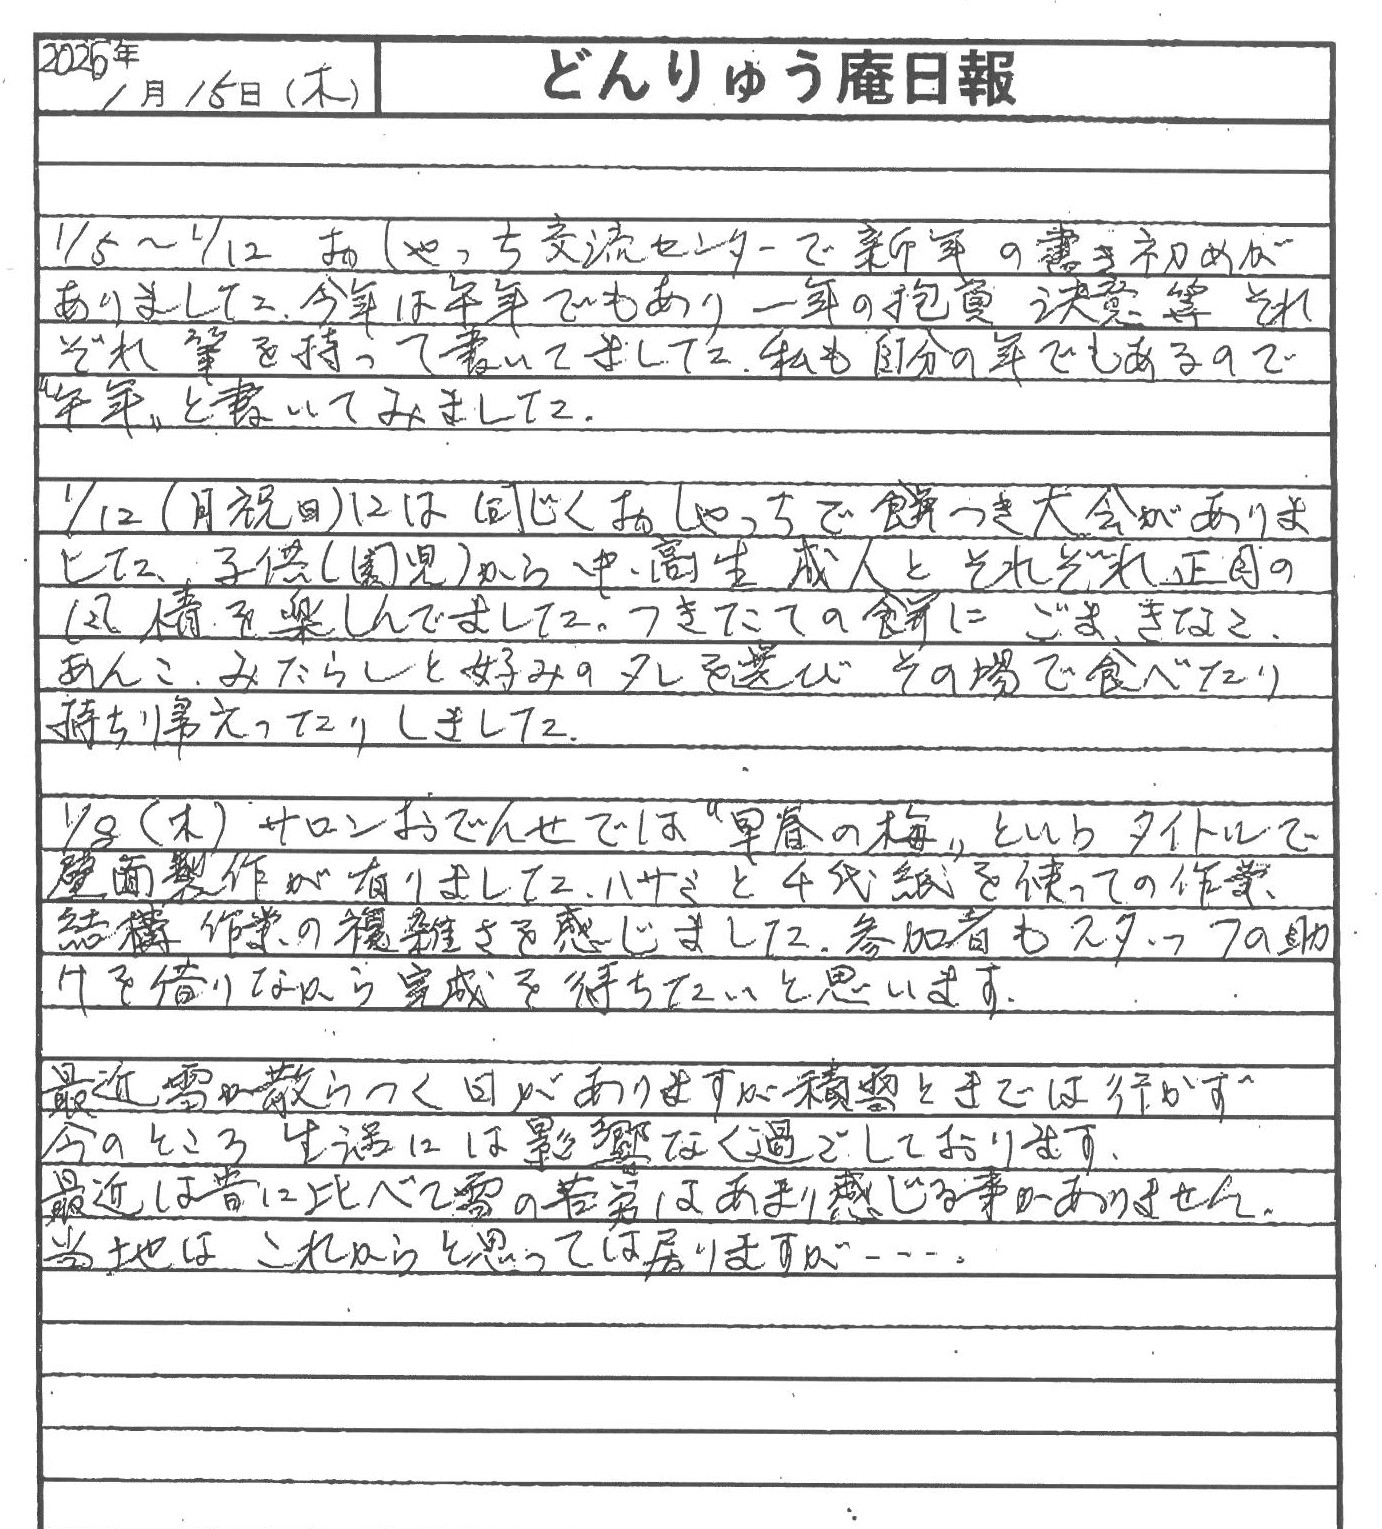 2026年
1月15日(木)
どんりゅう庵日報
1/5〜1/12 おしゃっち交流センターで新年の書き初めが
ありました、今年は午年でもあり一年の抱負 決意等 それ
ぞれ筆を持って書いてました、私も自分の年でもあるので
"午年"と書いてみました.
1/12(月祝日)には同じくおしゃっちで餅つき大会がありま
した、子供(園児)から中、高生 成人とそれぞれ正月の
風情を楽しんでました。つきたての餅に ごま、きなこ、
あんこ、みたらしと好みのタレを選び その場で食べたり
持ち帰えったりしました.
1/8(木) サロンおでんせでは"早春の梅"というタイトルで
壁面製作が有りました、ハサミと千代紙を使っての作業、
結構 作業の複雑さを感じました、参加者もスタッフの助
けを借りながら完成を待ちたいと思います.
最近雪が散らつく日がありますが積雪とまでは行かず
今のところ 生活には影響なく過ごしております.
最近は昔に比べて雪の苦労はあまり感じる事がありません.
当地は これからと思っては居りますが----.